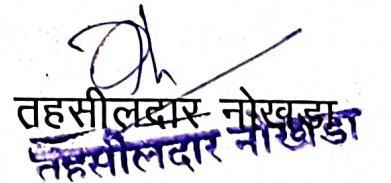 तहसीलदार नोखड़ा
तहसीलदार नोखड़ा